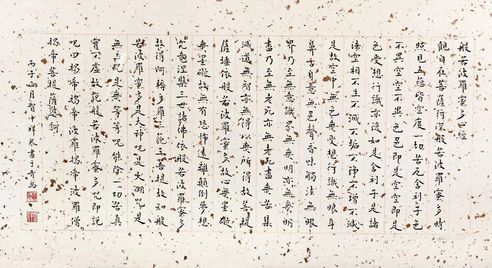 般若波羅蜜多心經
觀自在菩薩行深般若波羅蜜多時
照見五蘊皆空度一切苦厄舍利子色
不異空空不異色色即是空空即是
色受想行識亦復如是舍利子是諸
法空相不生不滅不垢不淨不增不減
是故空中無色無受想行識無眼耳
鼻舌身意無色聲香味觸法無眼
界乃至無意識界無無明亦無無明
盡乃至無老死亦無老死盡無苦集
滅道無智亦無得以無所得故菩提
薩埵依般若波羅蜜多故心無罣礙
無罣礙故無有恐怖遠離顛倒夢想
究竟涅槃三世諸佛依般若波羅蜜多
故得阿耨多羅三藐三菩提故知般
若波羅蜜多是大神咒是大明咒是
無上咒是無等等咒能除一切苦真
實不虛故說般若波羅蜜多咒即說
咒曰揭帝揭帝般羅揭帝般羅僧
揭帝菩提薩婆訶
丙子月